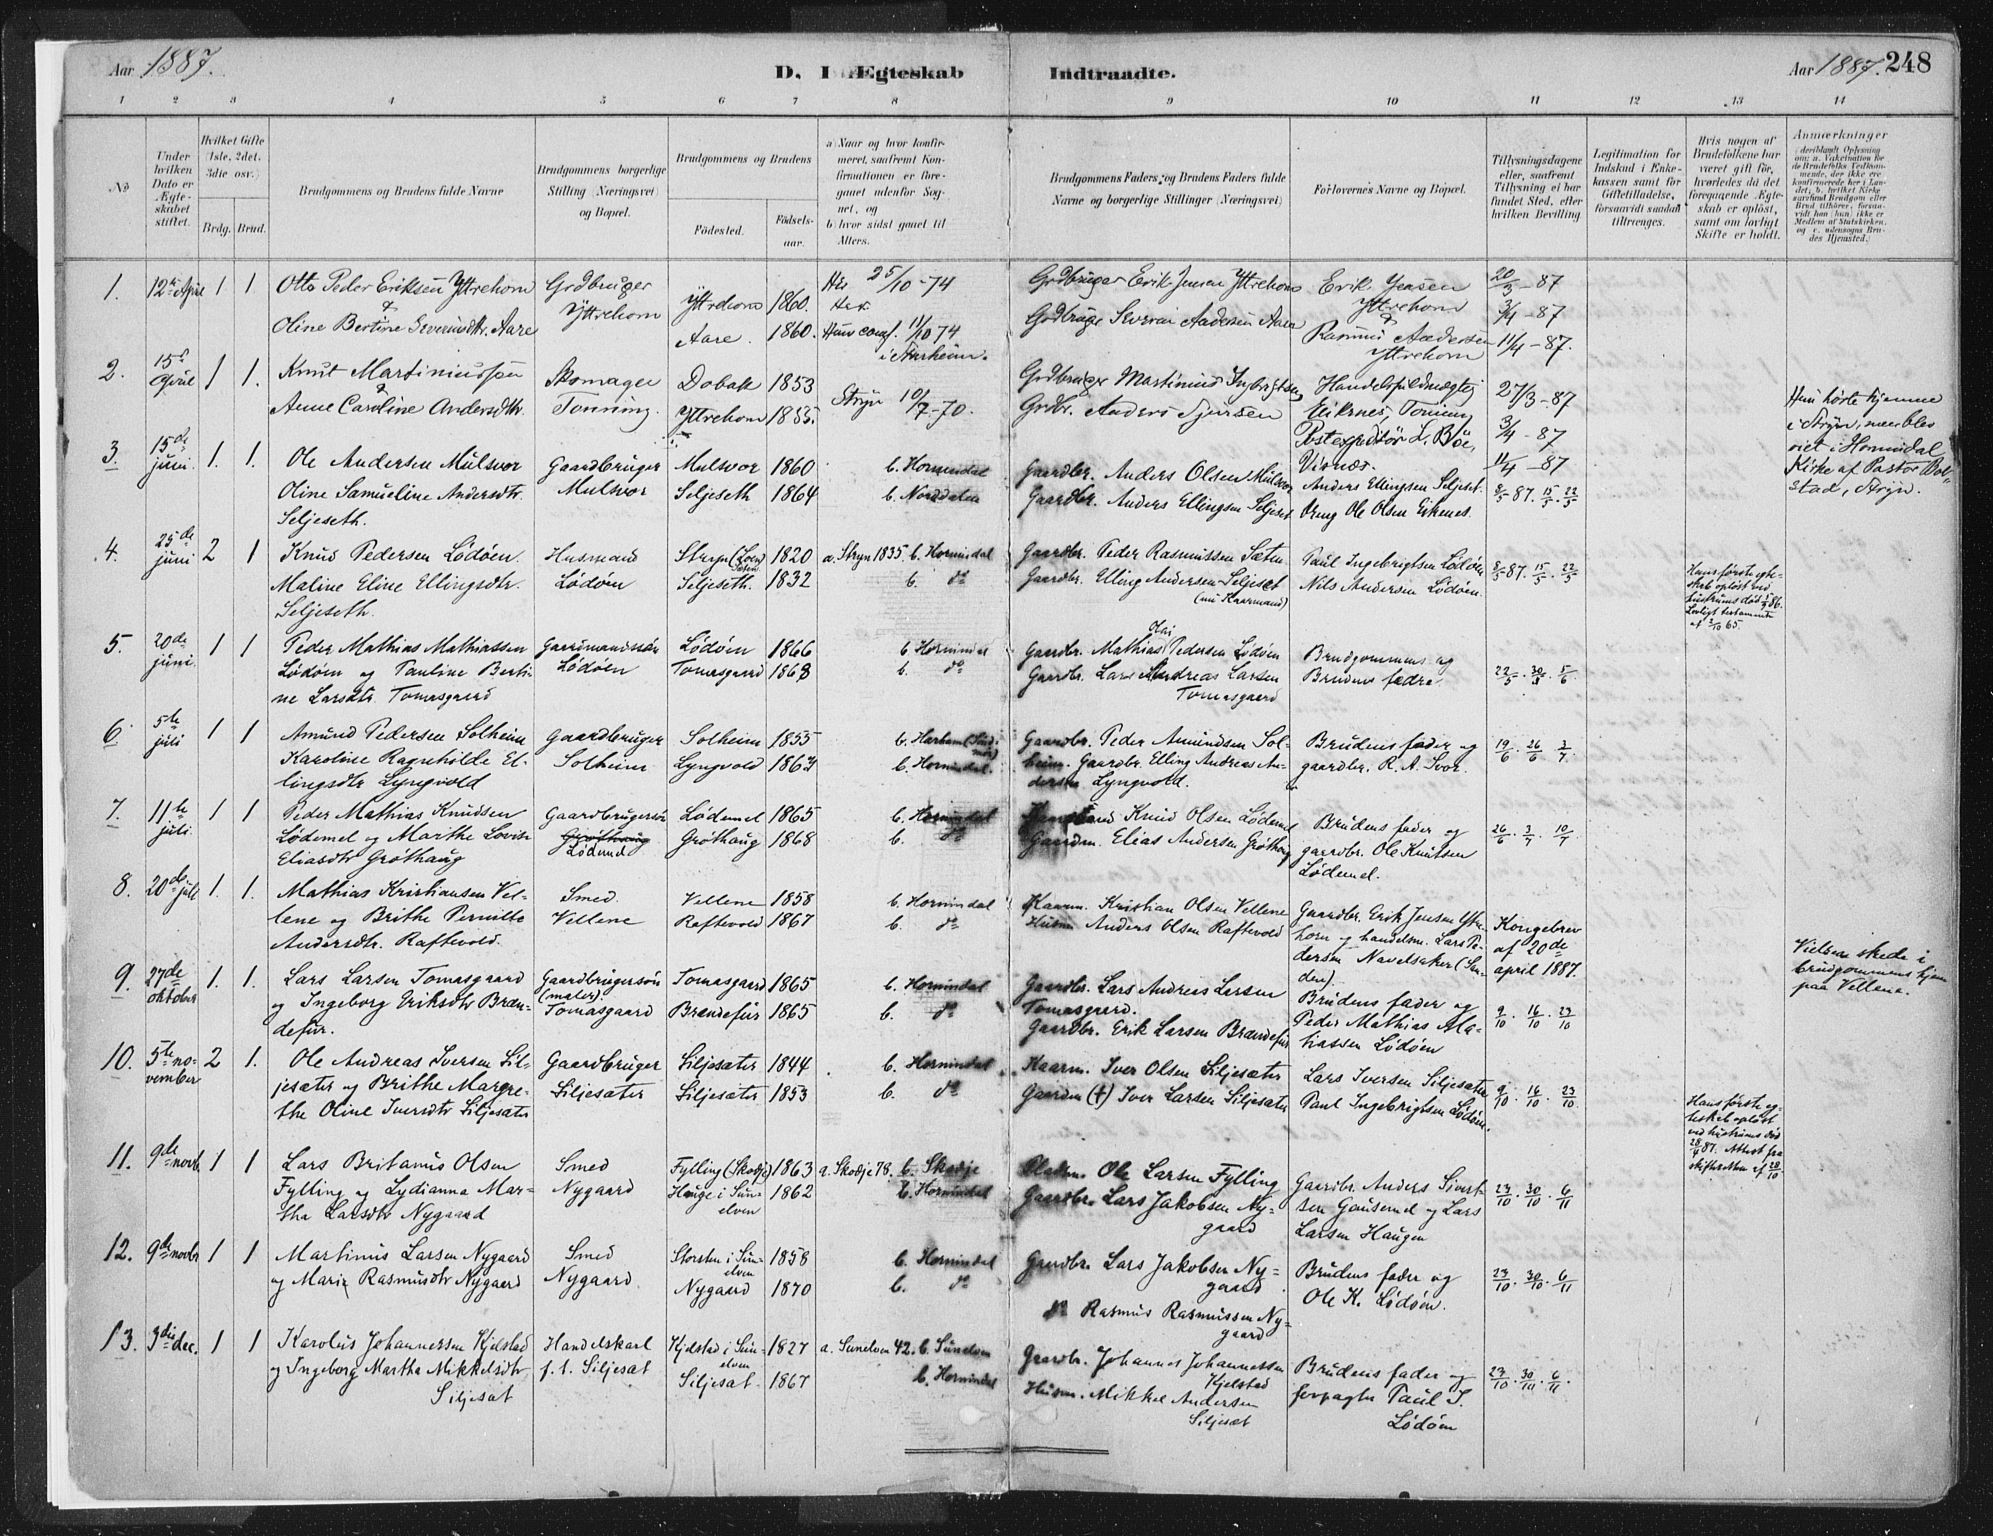 Aar 1887.
D. I Ægteskab Indtraadte.
Aar 1887. 248
1 2 3 4 5 6 7 8 9 10 11 12 13 14
No
Under hvilken Dato er Ægteskabet stiftet.
Hvilket Gifte (1ste, 2det, 3die osv.)
Brdg. Brud.
Brudgommens og Brudens fulde Navne
Brudgommens borgerlige Stilling (Næringsvei) og Bopæl.
Brudgommens og Brudens
Fødested. Fødselsaar.
a) Naar og hvor konfirmeret, saafremt Konfirmationen er foregaaet udenfor Sognet, og
b) hvor sidst gaaet til Alters.
Brudgommens Faders og Brudens Faders fulde Navne og borgerlige Stillinger (Næringsvei)
Forlovernes Navne og Bopæl.
Tillysningsdagene eller, saafremt Tillysning ei har fundet Sted, efter hvilken Bevilling.
Legitimation for Indskud i Enkekassen samt for Giftetilladelse, forsaavidt saadan tiltrænges.
Hvis nogen af Brudefolkene har været gift før, hvorledes da det foregaaende Ægteskab er opløst, samt om lovligt Skifte er holdt.
Anmærkninger
1. 12te April 1 1
Otto Peder Eriksen Yttrehorn
&
Oline Bertine Severinsdtr. Aare
Grdbruger
Yttrehorn
Yttrehorn 1860.
Aare. 1860.
25/10 - 74
Hun conf. 11/10 74
i Starheim.
Grdbruger Erik Jensen Yttrehorn
Erik Jensen
Yttrehorn
&
Rasmus Andersen
Yttrehorn
20/3 - 87
3/4 - 87
11/4 - 87.
2. 15d April 1 1.
Knut Martiniussen
&
Anne Caroline Andersdtr.
Skomager
Tonning.
Dobak 1853
Yttrehorn 1855.
Stryn 10/7 - 70.
Grdbruger Martinius Ingbrigtsen
Grdbr. Anders Sjursen
Handelsfuldmægtig
Eikenes, Tonning
Postexpeditör L. Böe,
Visnæs.
27/3 - 87
3/4 - 87
11/4 - 87
Hun hörte hjemme
i Stryn, men blev
viet i Hornindal
Kirke af Pastor Bol-
stad, Stryn.
3. 15de juni 1. 1.
Ole Andersen Mulsvor
Oline Samueline Andersdtr.
Seljeseth.
Gaardbruger
Mulsvor
Mulsvor 1860
Seljeseth 1864
b. Hornindal
b. Norddalen
Gaardbr. Anders Olsen Mulsvor
Gaardbr. Anders Ellingsen Seljeset
Anders Ellingsen Seljeset.
Dreng Ole Olsen Eikenes.
8/5 87. 15/5. 22/5
4. 25de juni 2 1
Knud Pedersen Lödöen.
Maline Eline Ellingsdtr.
Seljeseth.
Husmand
Lödöen
Stryn (Loen) Sæten 1820
Seljeseth. 1832
a. Stryn 1835. b. Hornindal
b. do
Gaardbr. Peder Rasmussen Sæten.
Gaardbr. Elling Andersen Seljeset
(nu Kaarmand)
Paul Ingebrigtsen Lödöen
Nils Andersen Lödöen.
8/5 87. 15/5. 22/5
Hans første egte-
skab oplöst ved
hustruens död 86.
Lovligt testamente
af 2/10 65.
5. 20de juni. 1 1
Peder Mathias Mathiassen
Lödöen og Pauline Berti-
ne Larsdtr Tomasgaard
Gaardmandssön
Lödöen
Lödöen 1866
Tomasgaard 1868
b Hornindal
b. do
Gaardbr. Mathias Pedersen Lödöen
Gaardbr. Lars Andreas Larsen
Tomasgaard
Brudgommens og
Brudens fædre
22/5. 30/5. 5/6
6 5te juli 1 1
Amund Pedersen Solheim
Karoline Ragnhilde El-
lingsdtr Lyngvold
Gaardbruger
Solheim
Solheim 1855
Lyngvold 1863
b. Harham (Sönd-
mör)
b. Hornindal.
Gaardbr. Peder Amundsen Sol-
heim. Gaardbr. Elling Andreas An-
dersen Lyngvold.
Brudens fader og
gaardbr. R. A. Svor.
19/6. 26/6. 3/7
7. 11te juli. 1 1
Peder Mathias Knudsen
Lödemel og Marthe Lovise
Eliasdtr Gröthaug
Gaardbrugersön
Gröthaug
Lödemel
Lödemel 1865
Gröthaug 1868
b. Hornindal
b. do
Knud Olsen Lödemel
Gaardm. Elias Andersen Gröthaug
Brudens fader og
gaardbr. Ole Knutsen
Lödemel.
26/6. 3/7. 10/7
8. 20de juli 1. 1.
Mathias Kristiansen Vel-
lene og Brithe Pernille
Andersdtr. Raftevold.
Smed.
Vellene
Vellene 1858
Raftevold 1867
b. Hornindal
b. do
Kaarm. Kristian Olsen Vellene
Husm Anders Olsen Raftevold
Gaardbr. Erik Jensen Ytre-
horn og handelsm. Lars Pe-
dersen Navelsaker (San-
den).
Kongebrev
af 20de
april 1887.
Vielsen skede i
brudgommens hjem
paa Vellene.
9. 27de oktober 1. 1.
Lars Larsen Tomasgaard
og Ingeborg Eriksdtr Bræn-
defur.
Gaardbrugersön
(maler).
Tomasgaard
Tomasgaard 1865
Brændefur 1865
b. Hornindal
b. do
Gaardbr. Lars Andreas Larsen
Tomasgaard.
Gaardbr. Erik Larsen Brændefur
Brudens fader og
Peder Mathias Ma-
thiassen Lödöen
9/10. 16/10. 23/10
10. 5te november 2 1.
Ole Andreas Iversen Sil-
jesæter og Brithe Margre-
the Oline Iversdtr Siljesæter
Gaardbruger
Siljesæter
Siljesæter 1844
Siljesæter. 1853
b. Hornindal
b. do
Kaarm. Iver Olsen Siljesæter
Gaardm (†) Iver Larsen Siljesæter
Lars Iversen Siljesæter
Paul Ingebrigtsen Lödöen.
9/10. 16/10. 23/10.
Hans første eg-
teskab oplöst
ved hustruens död
28/4 87. Attest fra
skifteretten af 28/10
11. 9de novb. 1 1
Lars Britanus Olsen
Fylling og Lydianna Mar-
tha Larsdtr Nygaard
Smed
Nygaard
Fylling (Skodje) 1863
Hauge i Sun-
elven 1862
a. Skodje 78. b. Skodje
b. Hornindal
Ole Larsen Fylling
Gaardbr. Lars Jakobsen Ny-
gaard
Gaardbr. Anders Sivert-
sen Gausemel og Lars
Larsen Haugen
23/10. 30/10. 6/11
12. 9de novbr 1 1
Martinus Larsen Nygaard
og Maria Rasmusdtr Nygaard
Smed
Nygaard
Storsten i Sun-
elven 1858
Nygaard 1870
b. Hornindal
b. do
Gaardbr. Lars Jakobsen Ny-
gaard
do Rasmus Rasmussen Ny-
gaard
Brudens fader og
Ole K. Lödöen.
23/10. 30/10. 6/11
13. 3die dec. 1 1
Karolus Johannessen Kjelstad
og Ingeborg Martha Mikkelsdtr
Siljesæt
Handelskarl
f. t. Siljesæt
Kjelstad i Sun-
elven 1827
Siljesæt. 1867
a. Sunelven 42. b. Sunelven
b. Hornindal
Gaardbr. Johannes Johannessen
Kjelstad
Husm. Mikkel Andersen
Siljesæt
Brudens fader og
forpagter Paul I.
Lödöen
23/10. 30/10. 6/11.